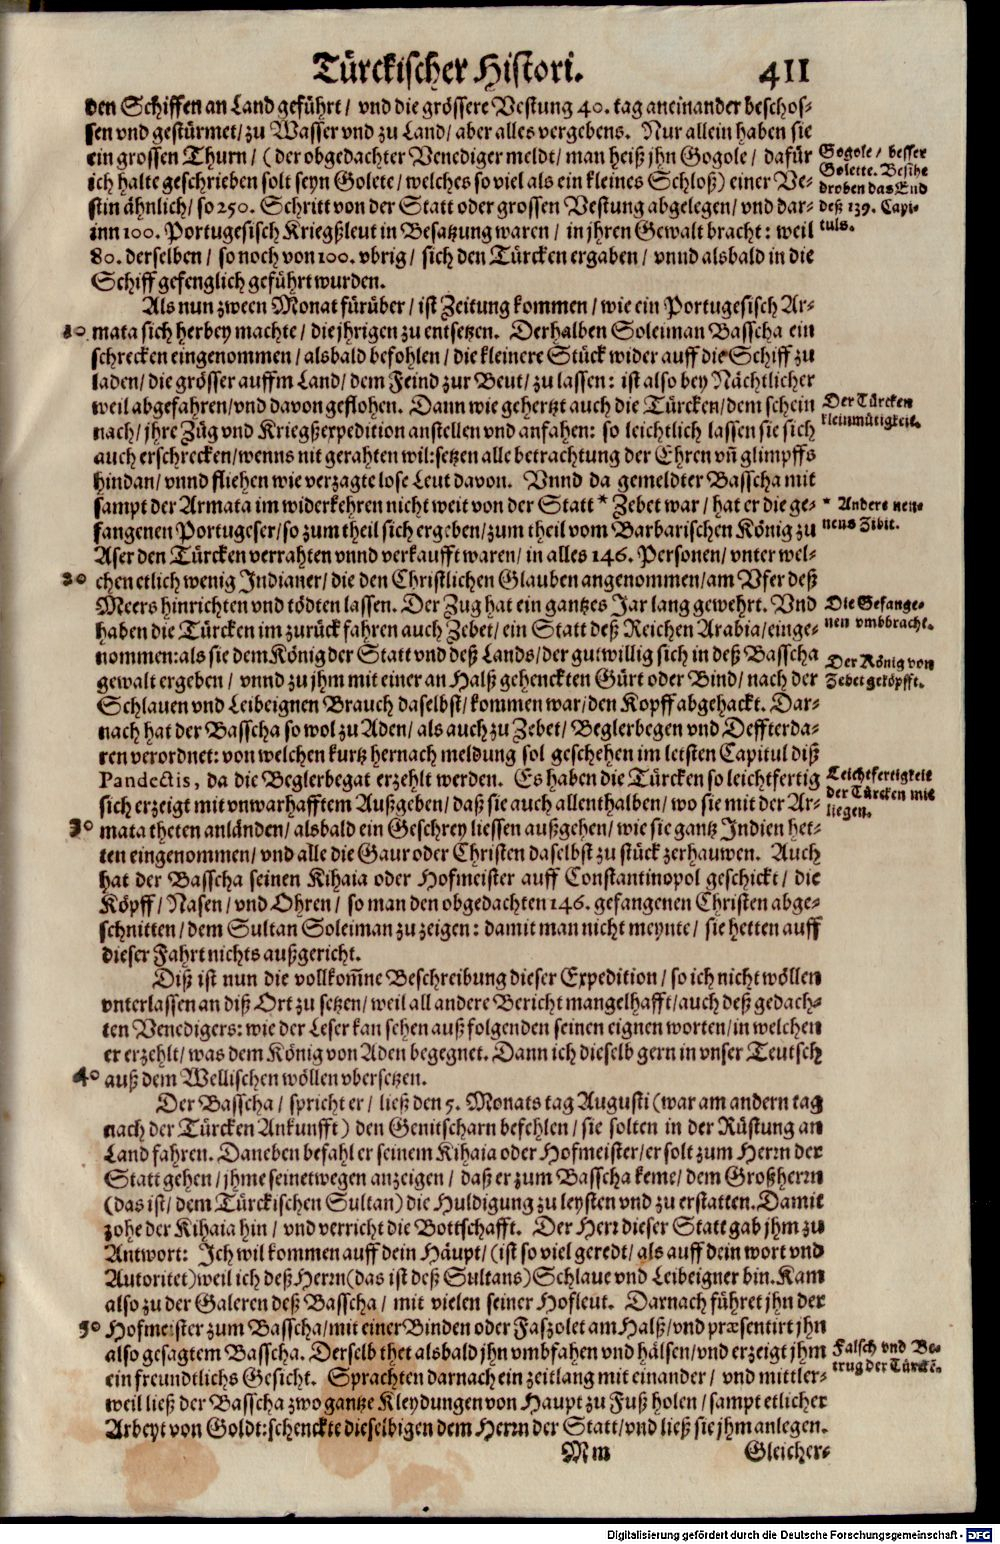 Türckischer Histori. 411
den Schiffen an Land geführt / vnd die grössere Vestung 40. tag aneinander beschos-
sen vnd gestürmet / zu Wasser vnd zu Land / aber alles vergebens. Nur allein haben sie
ein grossen Thurn / (der obgedachter Venediger meldt / man heiß jhn Gogole / dafür
ich halte geschrieben solt seyn Golete / welches so viel als ein kleines Schloß) einer Ve-
stin ähnlich / so 250. Schritt von der Statt oder grossen Vestung abgelegen / vnd dar-
inn 100. Portugesisch Kriegßleut in Besatzung waren / in jhren Gewalt bracht: weil
80. derselben / so noch von 100. vbrig / sich den Türcken ergaben / vnnd alsbald in die
Schiff gefenglich geführt wurden.
Gogole / besser
Golette. Besihe
droben das End
deß 139. Capi-
tuls.
Als nun zween Monat fürüber / ist Zeitung kommen / wie ein Portugesisch Ar-
10 mata sich herbey machte / die jhrigen zu entsetzen. Derhalben Soleiman Basscha ein
schrecken eingenommen / alsbald befohlen / die kleinere Stück wider auff die Schiff zu
laden / die grösser auffm Land / dem Feind zur Beut / zu lassen: ist also bey Nächtlicher
weil abgefahren / vnd davon geflohen. Dann wie gehertzt auch die Türcken / dem schein
nach / jhre Züg vnd Kriegßexpedition anstellen vnd anfahen: so leichtlich lassen sie sich
auch erschrecken / wenns nit gerahten wil: setzen alle betrachtung der Ehren vñ glimpffs
hindan / vnnd fliehen wie verzagte lose Leut davon. Vnnd da gemeldter Basscha mit
sampt der Armata im widerkehren nicht weit von der Statt * Zebet war / hat er die ge-
fangenen Portugeser / so zum theil sich ergeben / zum theil vom Barbarischen König zu
Aser den Türcken verrahten vnnd verkaufft waren / in alles 146. Personen / vnter wel-
20 chen etlich wenig Indianer / die den Christlichen Glauben angenommen / am Vfer deß
Meers hinrichten vnd tödten lassen. Der Zug hat ein gantzes Jar lang gewehrt. Vnd
haben die Türcken im zurück fahren auch Zebet / ein Statt deß Reichen Arabia / einge-
nommen: als sie dem König der Statt vnd deß Lands / der gutwillig sich in deß Basscha
gewalt ergeben / vnnd zu jhm mit einer an Halß gehenckten Gürt oder Bind / nach der
Schlauen vnd Leibeignen Brauch daselbst / kommen war / den Kopff abgehackt. Dar-
nach hat der Basscha so wol zu Aden / als auch zu Zebet / Beglerbegen vnd Deffterda-
ren verordnet: von welchen kurtz hernach meldung sol geschehen im letsten Capitul diß
Pandectis, da die Beglerbegat erzehlt werden. Es haben die Türcken so leichtfertig
sich erzeigt mit vnwarhafftem Außgeben / daß sie auch allenthalben / wo sie mit der Ar-
30 mata theten anländen / alsbald ein Geschrey liessen außgehen / wie sie gantz Indien het-
ten eingenommen / vnd alle die Gaur oder Christen daselbst zu stück zerhauwen. Auch
hat der Basscha seinen Kihaia oder Hofmeister auff Constantinopol geschickt / die
Köpff / Nasen / vnd Ohren / so man den obgedachten 146. gefangenen Christen abge-
schnitten / dem Sultan Soleiman zu zeigen: damit man nicht meynte / sie hetten auff
dieser Fahrt nichts außgericht.
Der Türcken
kleinmütigkeit.
* Andere nen-
nens Zibit.
Die Gefange-
nen vmbbracht.
Der König von
Zebet geköpfft.
Leichtfertigkeit
der Türcken mit
liegen.
Diß ist nun die vollkom̃ne Beschreibung dieser Expedition / so ich nicht wöllen
vnterlassen an diß Ort zu setzen / weil all andere Bericht mangelhafft / auch deß gedach-
ten Venedigers: wie der Leser kan sehen auß folgenden seinen eignen worten / in welchen
er erzehlt / was dem König von Aden begegnet. Dann ich dieselb gern in vnser Teutsch
40 auß dem Wellischen wöllen vbersetzen.
Der Basscha / spricht er / ließ den 5. Monats tag Augusti (war am andern tag
nach der Türcken Ankunfft) den Genitscharn befehlen / sie solten in der Rüstung an
Land fahren. Daneben befahl er seinem Kihaia oder Hofmeister / er solt zum Herrn der
Statt gehen / jhme seinetwegen anzeigen / daß er zum Basscha keme / dem Großherrn
(das ist / dem Türckischen Sultan) die Huldigung zu leysten vnd zu erstatten. Damit
zohe der Kihaia hin / vnd verricht die Bottschafft. Der Herr dieser Statt gab jhm zu
Antwort: Ich wil kommen auff dein Häupt / (ist so viel geredt / als auff dein wort vnd
Autoritet) weil ich deß Herrn (das ist deß Sultans) Schlaue vnd Leibeigner bin. Kam
also zu der Galeren deß Basscha / mit vielen seiner Hofleut. Darnach führet jhn der
50 Hofmeister zum Basscha / mit einer Binden oder Faszolet am Halß / vnd præsentirt jhn
also gesagtem Basscha. Derselb thet alsbald jhn vmbfahen vnd hälsen / vnd erzeigt jhm
ein freundtlichs Gesicht. Sprachten darnach ein zeitlang mit einander / vnd mittler-
weil ließ der Basscha zwo gantze Kleydungen von Haupt zu Fuß holen / sampt etlicher
Arbeyt von Goldt: schenckte dieselbigen dem Herrn der Statt / vnd ließ sie jhm anlegen.
Falsch vnd Be-
trug der Türckẽ.
Mm Gleicher-
Digitalisierung gefördert durch die Deutsche Forschungsgemeinschaft - DFG